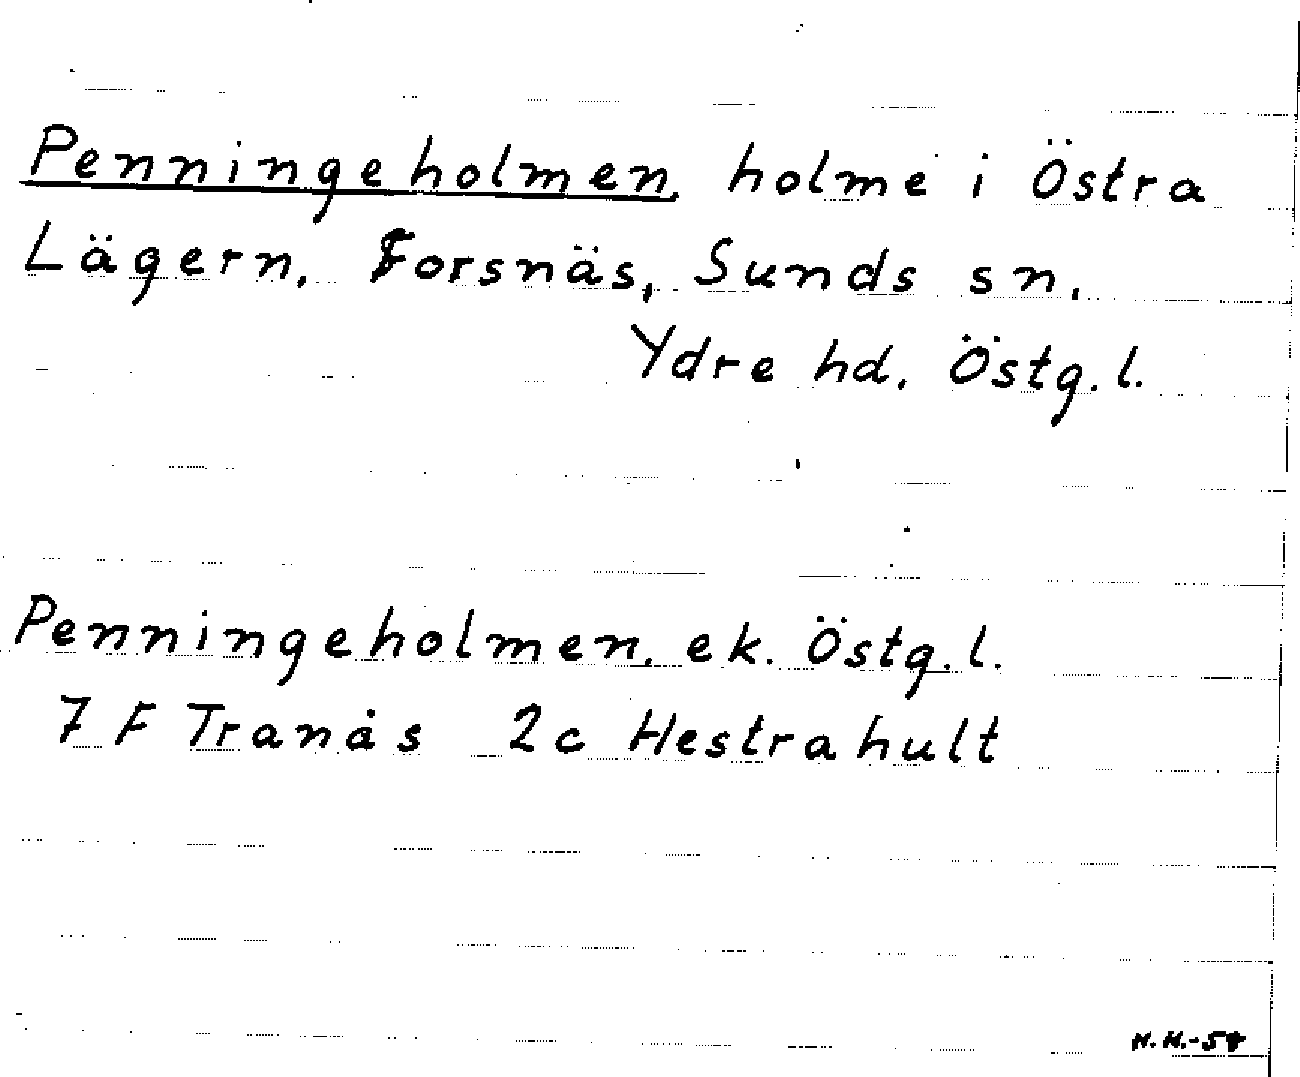 Penningeholmen, holme i Östra
Lägern, Forsnäs, Sunds sn.
Ydre hd. Östg. l.
Penningeholmen, ek. Östg. l.
7 F Tranås 2c Hestrahult